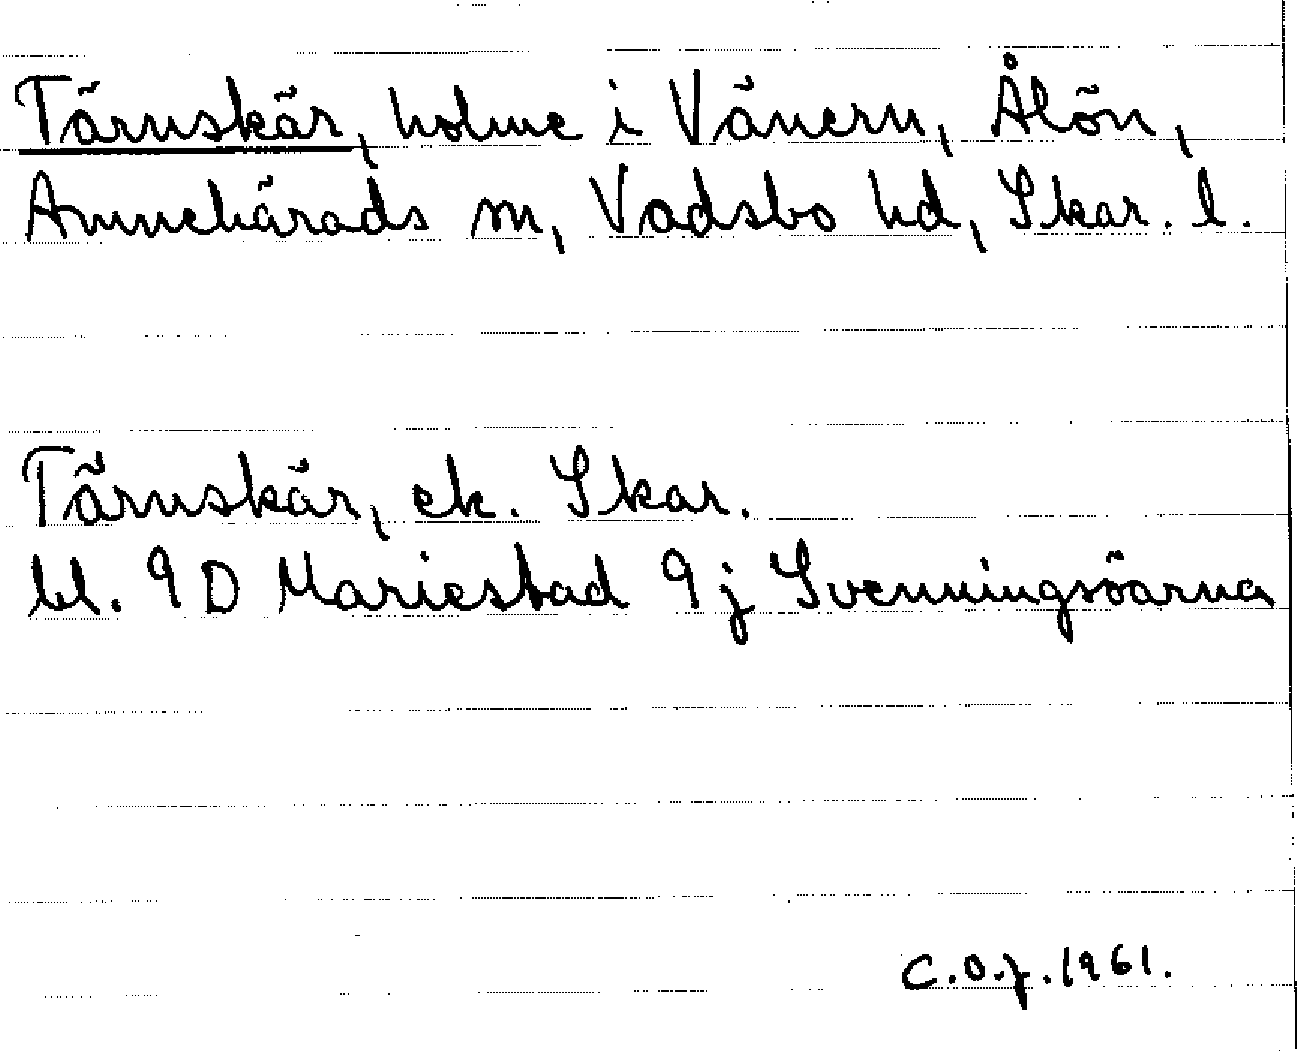 Tärnskär, holme i Vänern, Ålön,
Amnehärads sn, Vadsbo hd, Skar. l.
Tärnskär, ek. Skar.
bl. 9 D Mariestad 9 j Svenningsöarna
C.O.J. 1961.